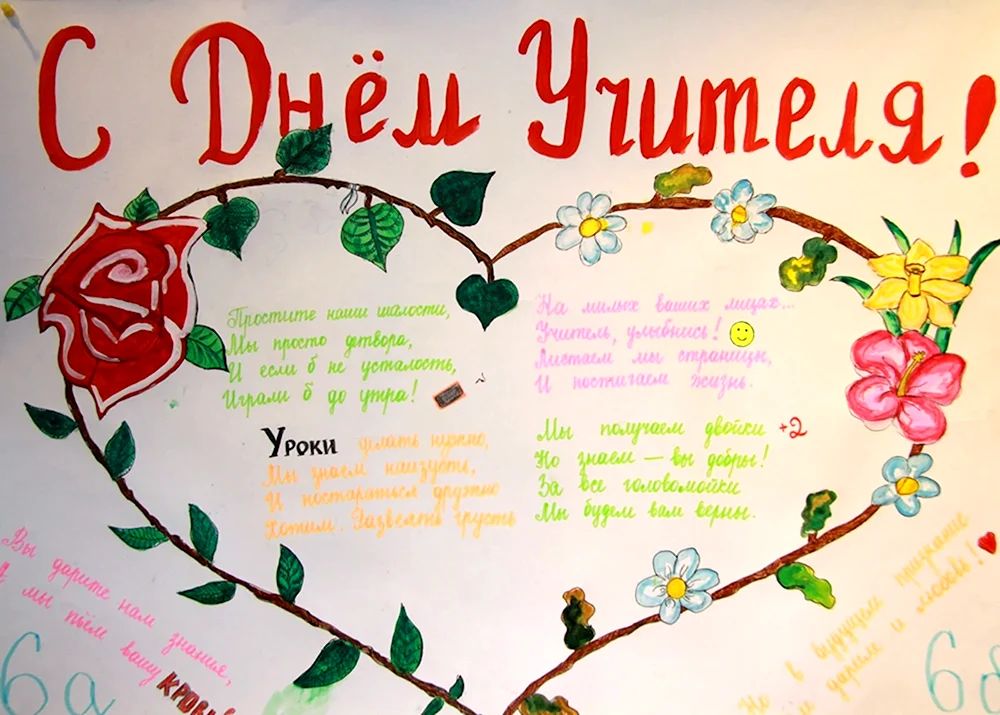 С Днём Учителя!
Простите наши шалости,
Мы просто детвора,
И если б не усталость,
Играли б до утра!
На милых ваших лицах...
Учитель, улыбнись!
Листаем мы страницы,
И постигаем жизнь.
Уроки делать нужно,
Мы знаем наизусть,
И постараться дружно
Хотим. Развеять грусть
Мы получаем двойки +2
Но знаем — вы добры!
За все головомойки
Мы будем вам верны.
Вы дарите нам знания,
А мы пьём вашу КРОВЬ!
Но в будущем признание
дарим и любовь!
6а
6в